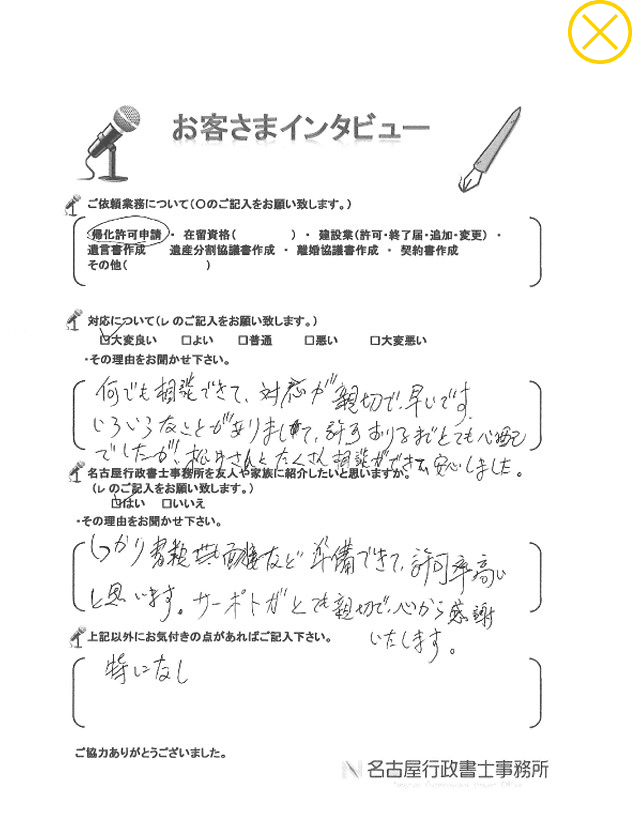 お客さまインタビュー
ご依頼業務について(〇のご記入をお願い致します。)
帰化許可申請 ・ 在留資格( ) ・ 建設業(許可・終了届・追加・変更) ・
遺言書作成 遺産分割協議書作成 ・ 離婚協議書作成 ・ 契約書作成
その他( )
対応について(レ のご記入をお願い致します。)
☑大変良い □よい □普通 □悪い □大変悪い
・その理由をお聞かせ下さい。
何でも相談できて、対応が親切で、早いです。
いろいろなことがありまして、許可おりるまでとても心配
でしたが、松井さんとたくさん相談ができて、安心しました。
名古屋行政書士事務所を友人や家族に紹介したいと思いますか。
(レ のご記入をお願い致します。)
☑はい □いいえ
・その理由をお聞かせ下さい。
しっかり書類 面接など準備できて、許可率高い
と思います。サーポトがとても親切で、心から感謝
いたします。
上記以外にお気付きの点があればご記入下さい。
特になし
ご協力ありがとうございました。
名古屋行政書士事務所